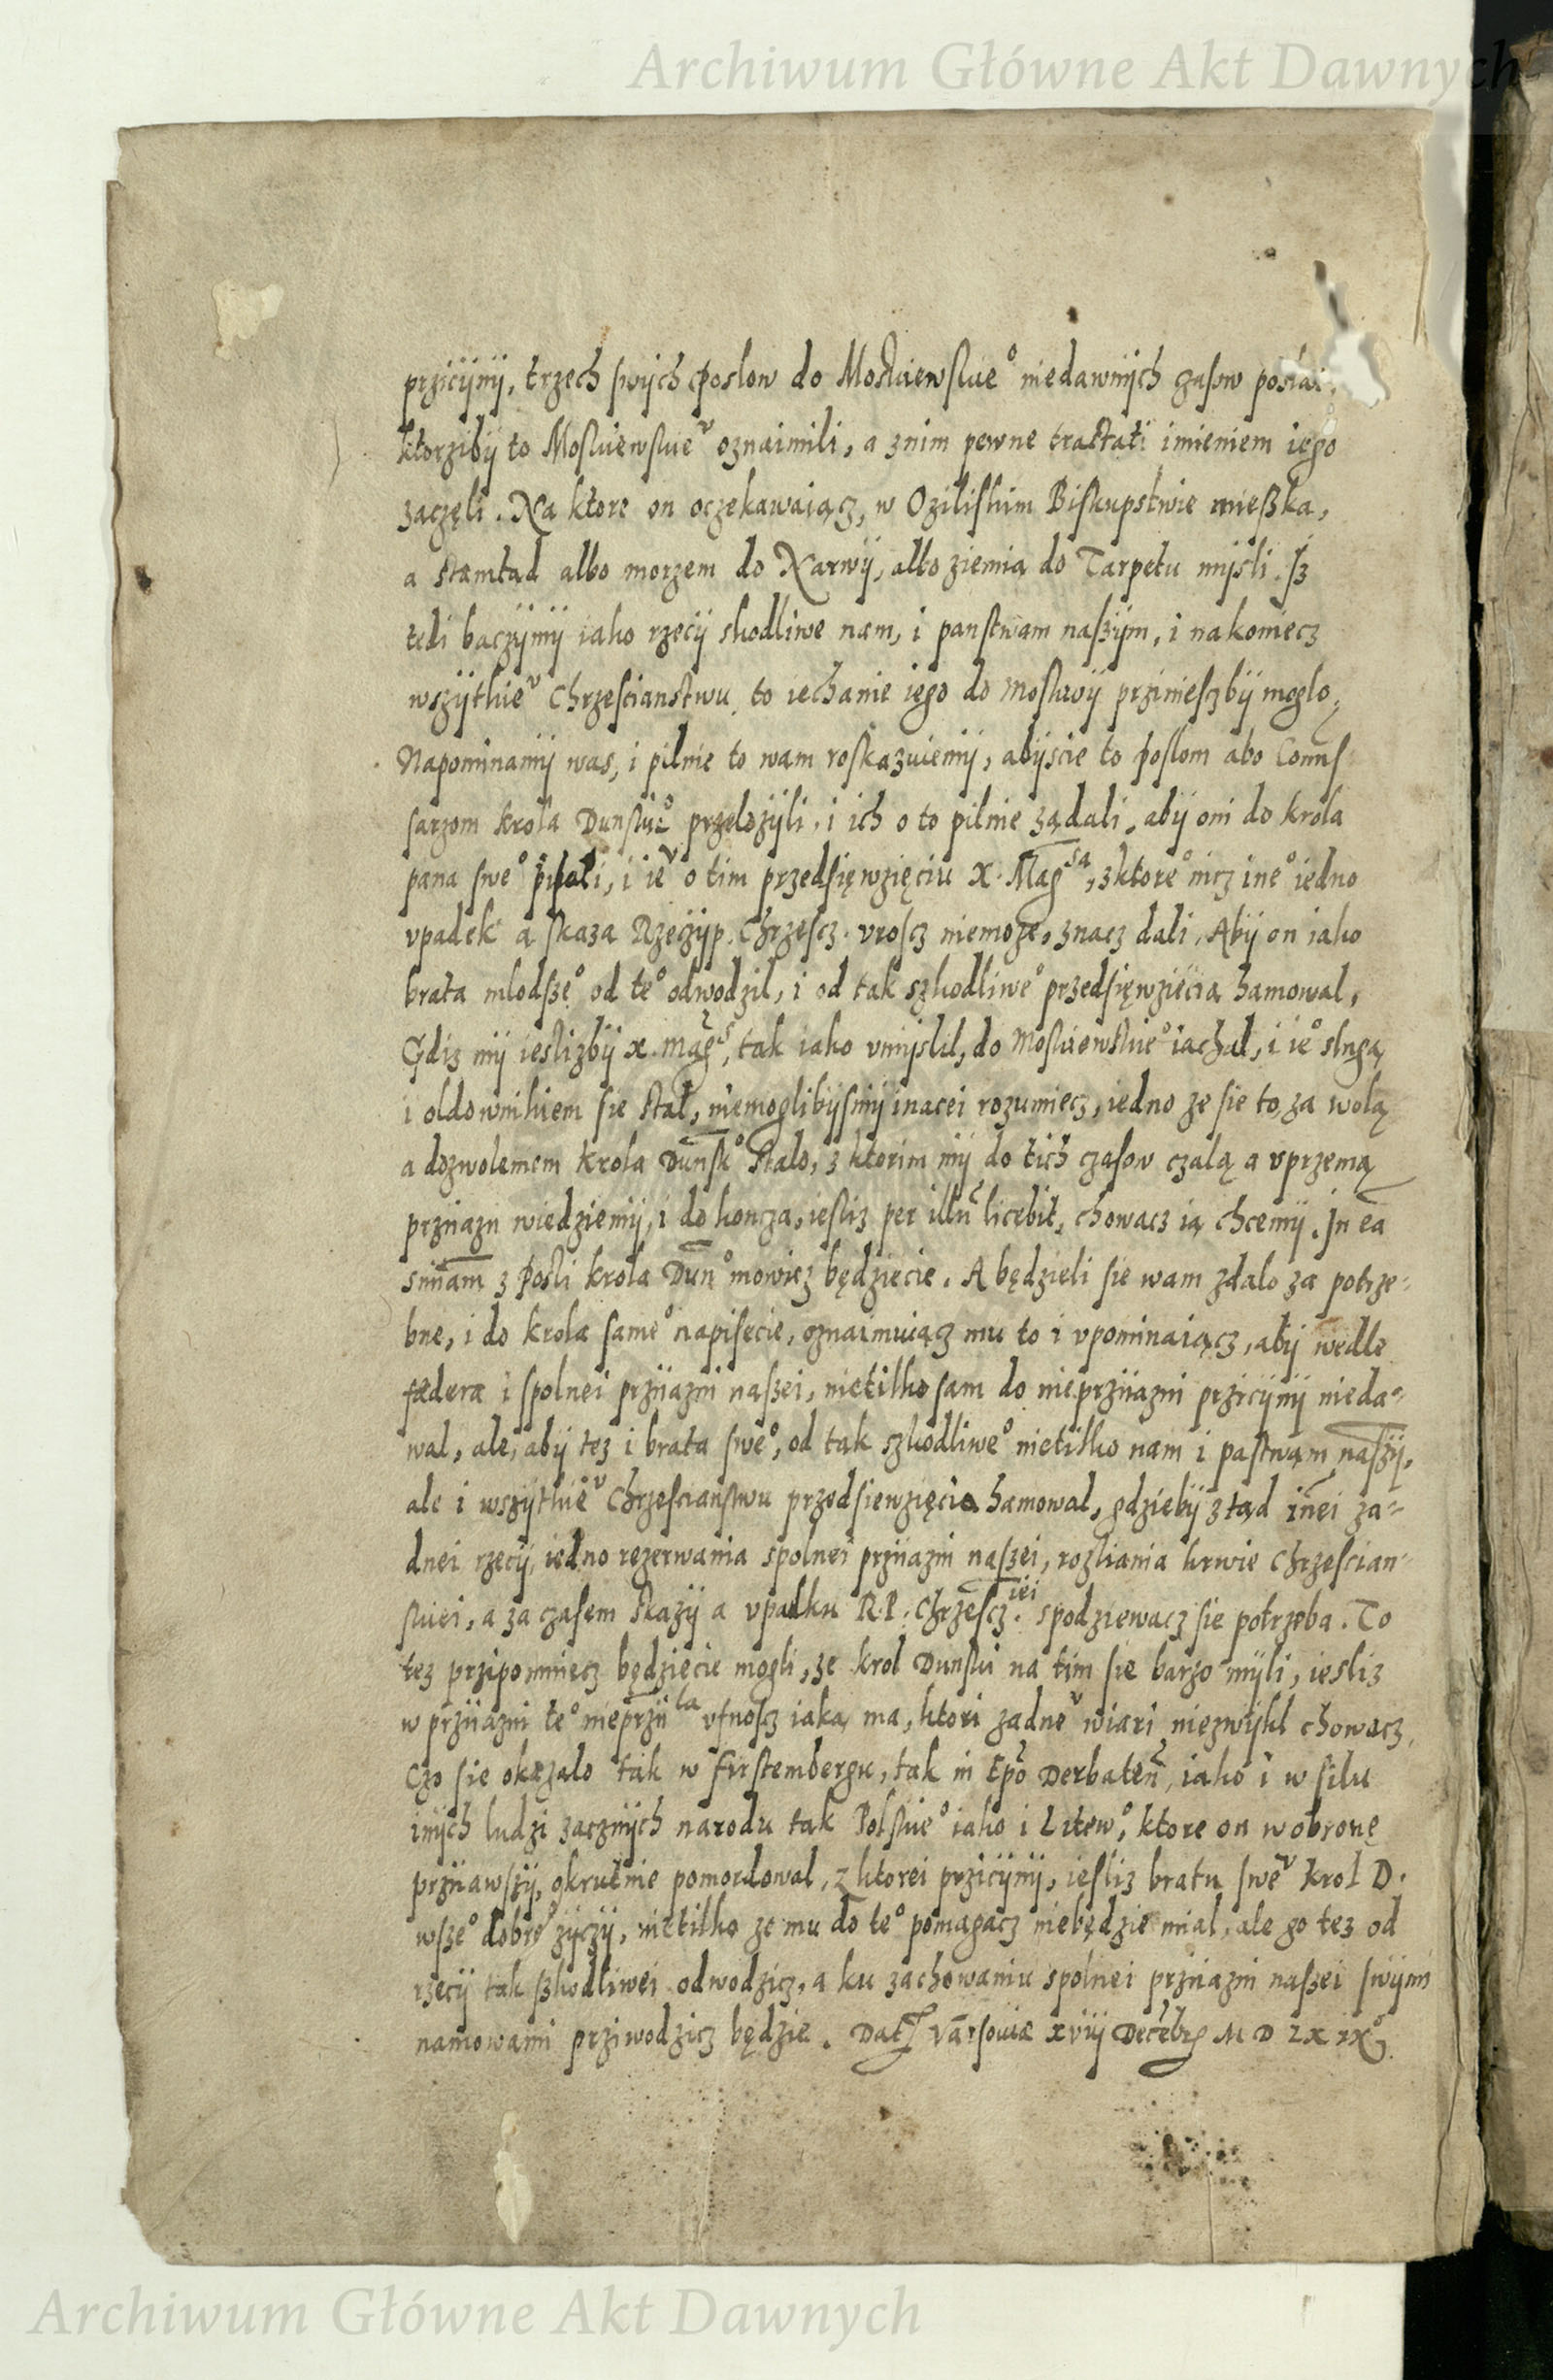 Archiwum Główne Akt Dawnych
prziczijnij, trzech swijch posłow do Moskiewskieº niedawnijch czasow posłał,
ktorzibij to Moskiewskieᵛ oznaimili, a znim pewne tractati imieniem iego
zaczęli. Na ktore on oczekawaiącz, w Oziliskim Biskupstwie mießka,
a stamtąd albo morzem do Narwij, albo ziemią do Tarpetu mijsli. Jż
tedi baczijmij iako rzeczij skodliwe nam, i panstwam naszijm, i nakoniecz
wszijtkieᵛ Chrzescianstwu to iechanie iego do Moskwij prziniesczbij moglo,
Napominamij was, i pilnie to wam roskazuiemij, abijscie to posłom abo Comis
sarzom krola Dunskieº przelozijli, i ich o to pilnie żądali, abij oni do krola
pana sweº pisali, i ieᵛ o tim przedsięwzięciu X. Magˢᵃ, z ktoreº nicz ineº iedno
vpadek a skaza Rzeczijp. Chrzescz. vroscz niemoze, znacz dali, Abij on iako
brata mlodszeº od teº odwodzil, i od tak szkodliweº przedsięwzięcia hamowal,
Gdiz mij ieslizbij x. magˢ, tak iako vmijslil, do Moskiewskieº iachal, i ieº slugą
i oldownikiem sie stal, niemoglibijsmij inaczei rozumiecz, iedno ze sie to za wolą
a dozwoleniem krola Dunskº stalo, z ktorim mij do tich czasow czalą a vprzemą
prziiazn wiedziemij, i do koncza, iesliz per illū licebit, chowacz ią chcemij. In eā
sn̄iam z posli krola Dunº mowicz będziecie. A będzieli sie wam zdalo za potrze-
bne, i do krola sameº napiszecie, oznaimuiącz mu to i vpominaiącz, abij wedle
fœdera i spolnei prziiazni naszei, nietilko sam do nieprziiazni prziczijnij nieda-
wal, ale, abij tez i brata sweº, od tak szkodliweº nietilko nam i pastwam naszij,
ale i wszijtkieᵛ Chrzescianstwu przedsiewzięcia hamowal, gdziebij ztąd in̄ei za-
dnei rzeczij, iedno rozerwania spolnei prziiazni naszei, rozliania krwie Chrzescian-
skiei, a za czasem skazij a vpadku R.P. Chrzesczⁱᵉⁱ spodziewacz sie potrzeba. To
tez przipomniecz będziecie mogli, ze krol Dunski na tim sie barzo mijli, iesliz
w prziiazni teº nieprziiˡᵃ vfnoscz iaką ma, ktori zadneᵛ wiari niezwijkl chowacz,
Czo sie okazalo tak w Firstembergu, tak in Ep̄o Derbaten̄, iako i w silu
inijch ludzi zacznijch narodu tak Polskieº iako i Litewº, ktore on w obronę
prziiawszij, okrutnie pomordowal, z ktorei prziczijnij, iesliz bratu sweᵛ krol D.
wszeº dobreº zijczij, nietilko ze mu do teº pomagacz niebędzie mial, ale go tez od
rzeczij tak szkodliwei odwodzicz, a ku zachowaniu spolnei prziiazni naszei swijmi
namowami prziwodzicz będzie. Dat Varsouiæ xvij Decēbr M D LX IXº
Archiwum Główne Akt Dawnych